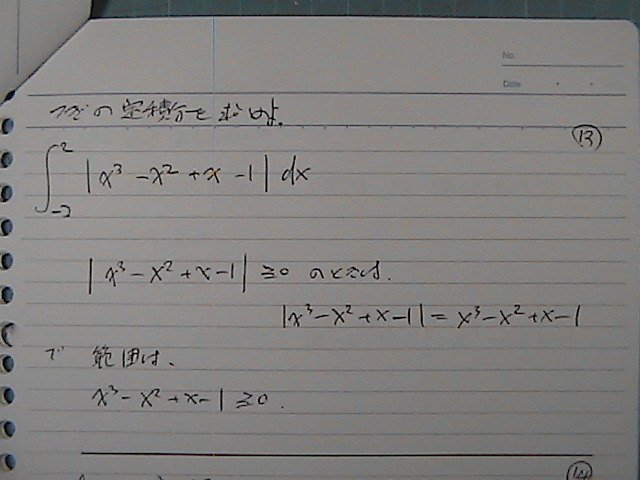 No.
Date
つぎの定積分を求めよ。
⑬
∫_{-2}^{2} |x³ - x² + x - 1| dx
|x³ - x² + x - 1| ≥ 0 のときは、
|x³ - x² + x - 1| = x³ - x² + x - 1
で 範囲は、
x³ - x² + x - 1 ≥ 0.
⑭